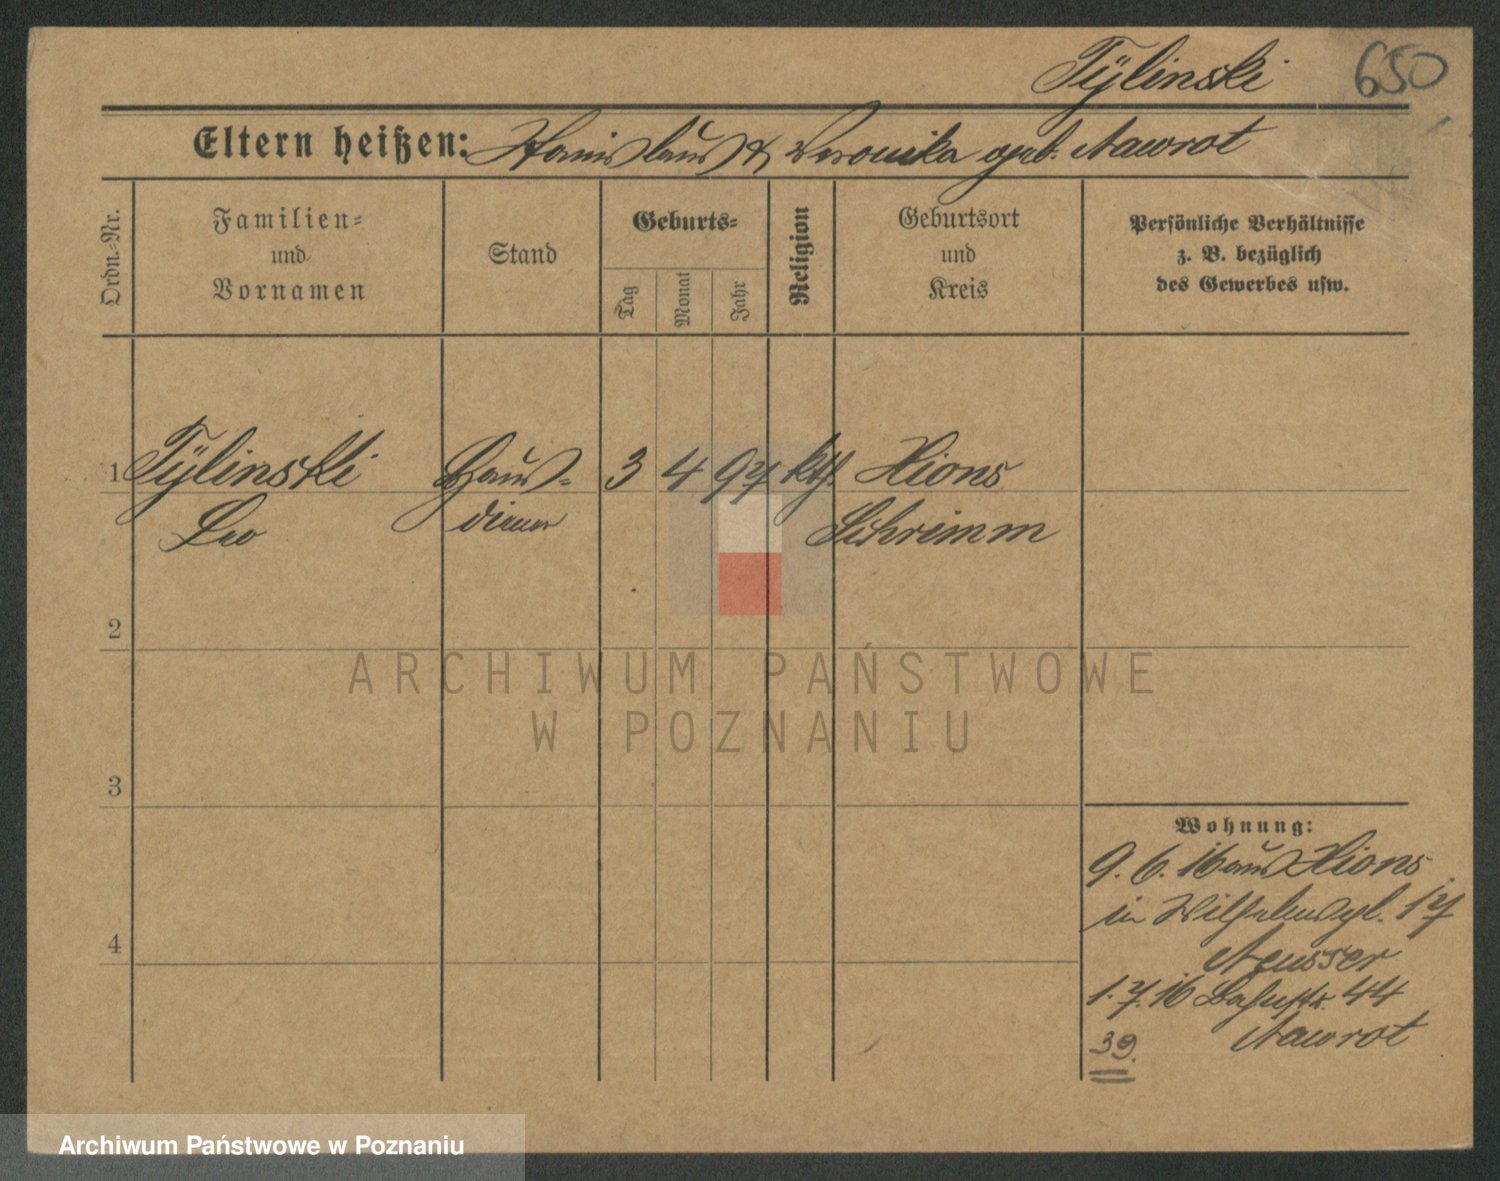 Tÿlinski 650
Eltern heißen: Stanislaus & Veronika geb. Nawrot
Ordn.-Nr.
Familien-
und
Vornamen
Stand
Geburts-
Tag
Monat
Jahr
Religion
Geburtsort
und
Kreis
Persönliche Verhältnisse
z. B. bezüglich
des Gewerbes usw.
1 Tÿlinski Haus- 3 4 97 kth. Xions
Leo diener Schrimm
2
3
4
Wohnung:
9. 6. 16 aus Xions
in Wilhelmspl. 17
1. 7. 16 Bahnstr. 44
Nawrot
39.
ARCHIWUM PAŃSTWOWE
W POZNANIU
Archiwum Państwowe w Poznaniu